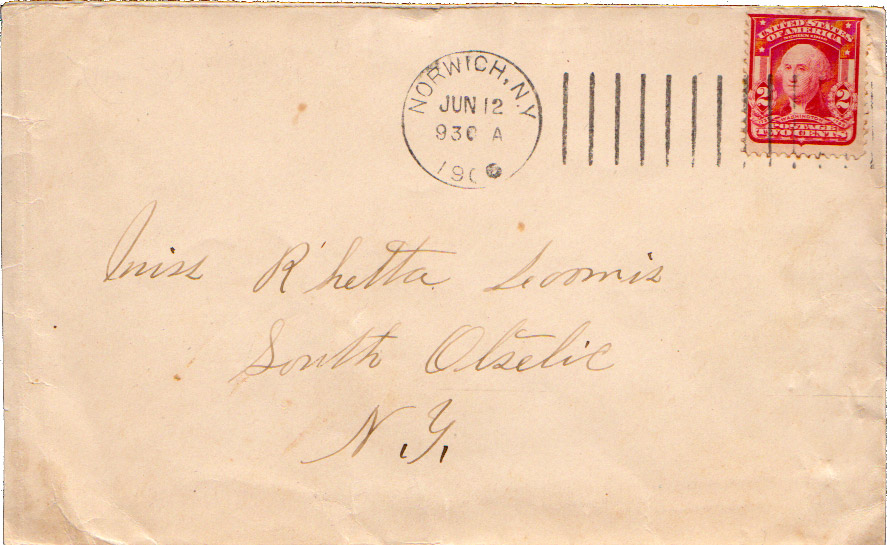 NORWICH, N.Y.
JUN 12
930 A
190
UNITED STATES
OF AMERICA
2 WASHINGTON 2
POSTAGE
TWO CENTS
Miss R'hetta Loomis
South Otselic
N.Y.